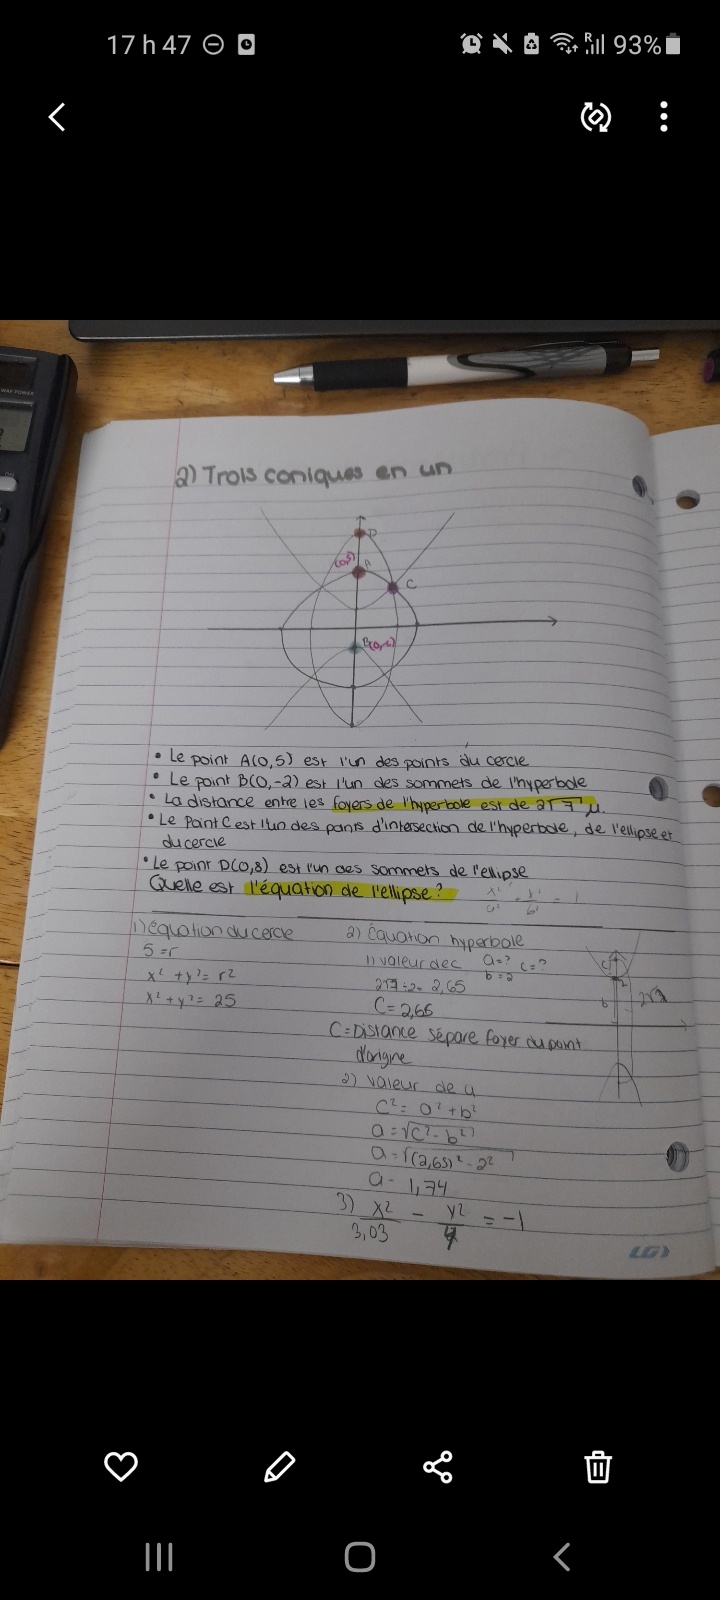 17 h 47
R
93%
WAY POWER
2) Trois coniques en un
D
(0,5)
A
C
B(0,-2)
• Le point A(0,5) est l'un des points du cercle
• Le point B(0,-2) est l'un des sommets de l'hyperbole
• La distance entre les foyers de l'hyperbole est de 2√7 μ.
• Le Point C est l'un des points d'intersection de l'hyperbole, de l'ellipse et
du cercle
• Le point D(0,8) est l'un des sommets de l'ellipse
Quelle est l'équation de l'ellipse?
1) équation du cercle
5 = r
x² + y² = r²
x² + y² = 25
2) Équation hyperbole
1) valeur de c a = ? c = ?
b = 2
2√7 ÷ 2 = 2,65
C = 2,65
C = Distance sépare foyer du point
d'origine
2) valeur de a
c² = a² + b²
a = √c² - b²
a = √(2,65)² - 2²
a = 1,74
3) x²/3,03 - y²/4 = -1
c
2
b
2√7